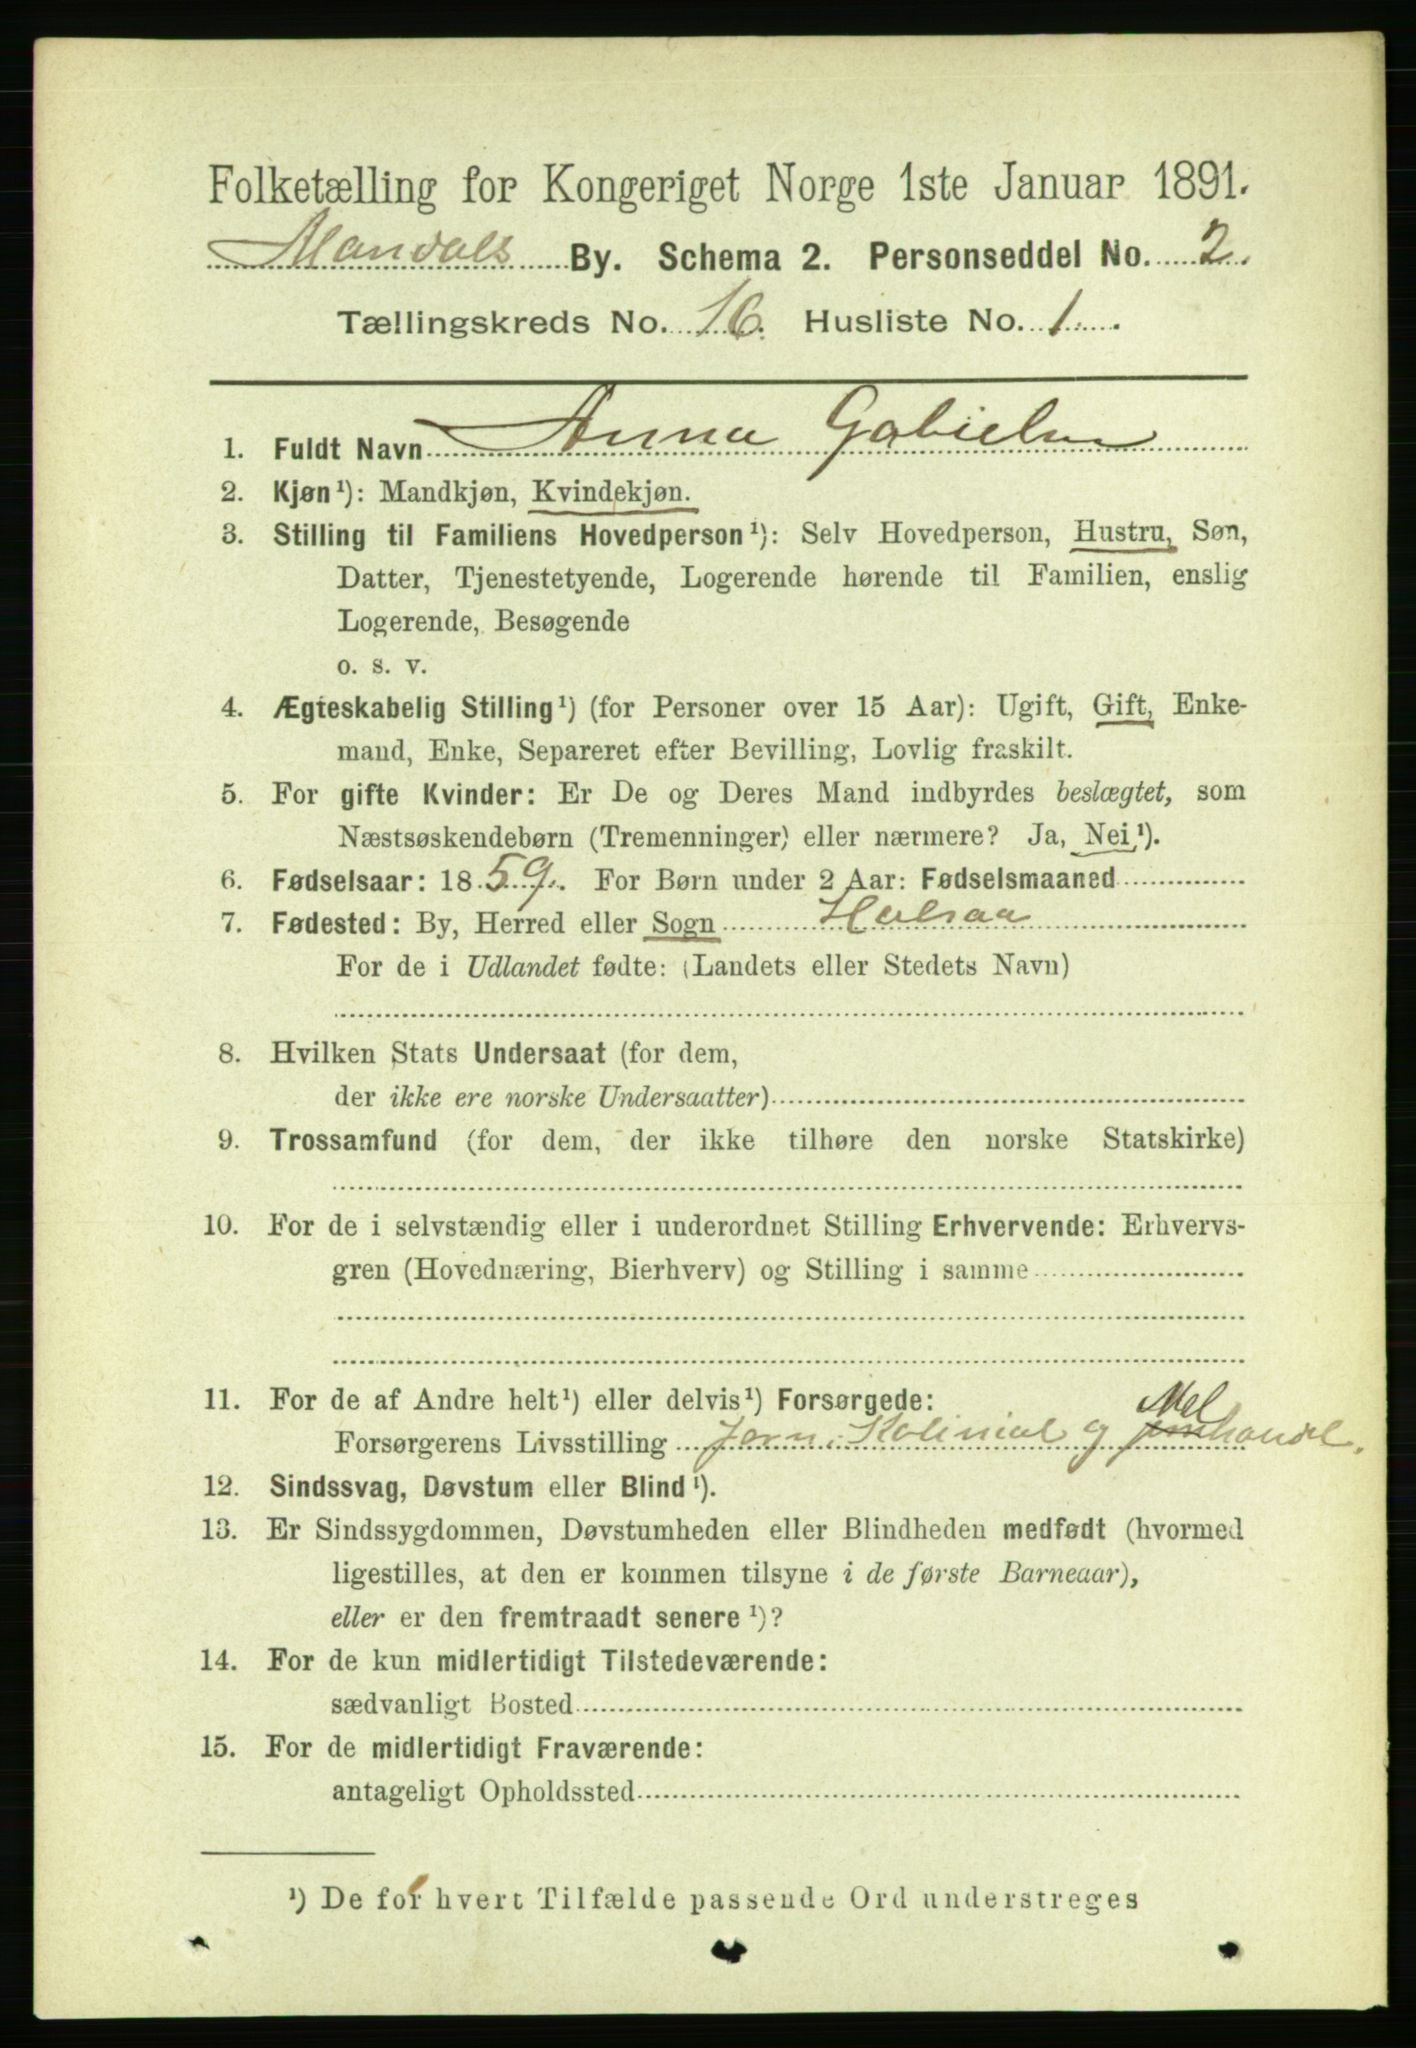 Folketælling for Kongeriget Norge 1ste Januar 1891.
Mandals By. Schema 2. Personseddel No. 2.
Tællingskreds No. 16. Husliste No. 1.
1. Fuldt Navn Anna Gabielsen
2. Kjøn¹): Mandkjøn, Kvindekjøn.
3. Stilling til Familiens Hovedperson¹): Selv Hovedperson, Hustru, Søn,
Datter, Tjenestetyende, Logerende hørende til Familien, enslig
Logerende, Besøgende
o. s. v.
4. Ægteskabelig Stilling¹) (for Personer over 15 Aar): Ugift, Gift, Enke-
mand, Enke, Separeret efter Bevilling, Lovlig fraskilt.
5. For gifte Kvinder: Er De og Deres Mand indbyrdes beslægtet, som
Næstsøskendebørn (Tremenninger) eller nærmere? Ja, Nei¹).
6. Fødselsaar: 1859. For Børn under 2 Aar: Fødselsmaaned
7. Fødested: By, Herred eller Sogn Halsaa
For de i Udlandet fødte: (Landets eller Stedets Navn)
8. Hvilken Stats Undersaat (for dem,
der ikke ere norske Undersaatter)
9. Trossamfund (for dem, der ikke tilhøre den norske Statskirke)
10. For de i selvstændig eller i underordnet Stilling Erhvervende: Erhvervs-
gren (Hovednæring, Bierhverv) og Stilling i samme
11. For de af Andre helt¹) eller delvis¹) Forsørgede:
Mel
Forsørgerens Livsstilling Jern, Kolinial og handel.
12. Sindssvag, Døvstum eller Blind¹).
13. Er Sindssygdommen, Døvstumheden eller Blindheden medfødt (hvormed
ligestilles, at den er kommen tilsyne i de første Barneaar),
eller er den fremtraadt senere¹)?
14. For de kun midlertidigt Tilstedeværende:
sædvanligt Bosted
15. For de midlertidigt Fraværende:
antageligt Opholdssted
¹) De for hvert Tilfælde passende Ord understreges